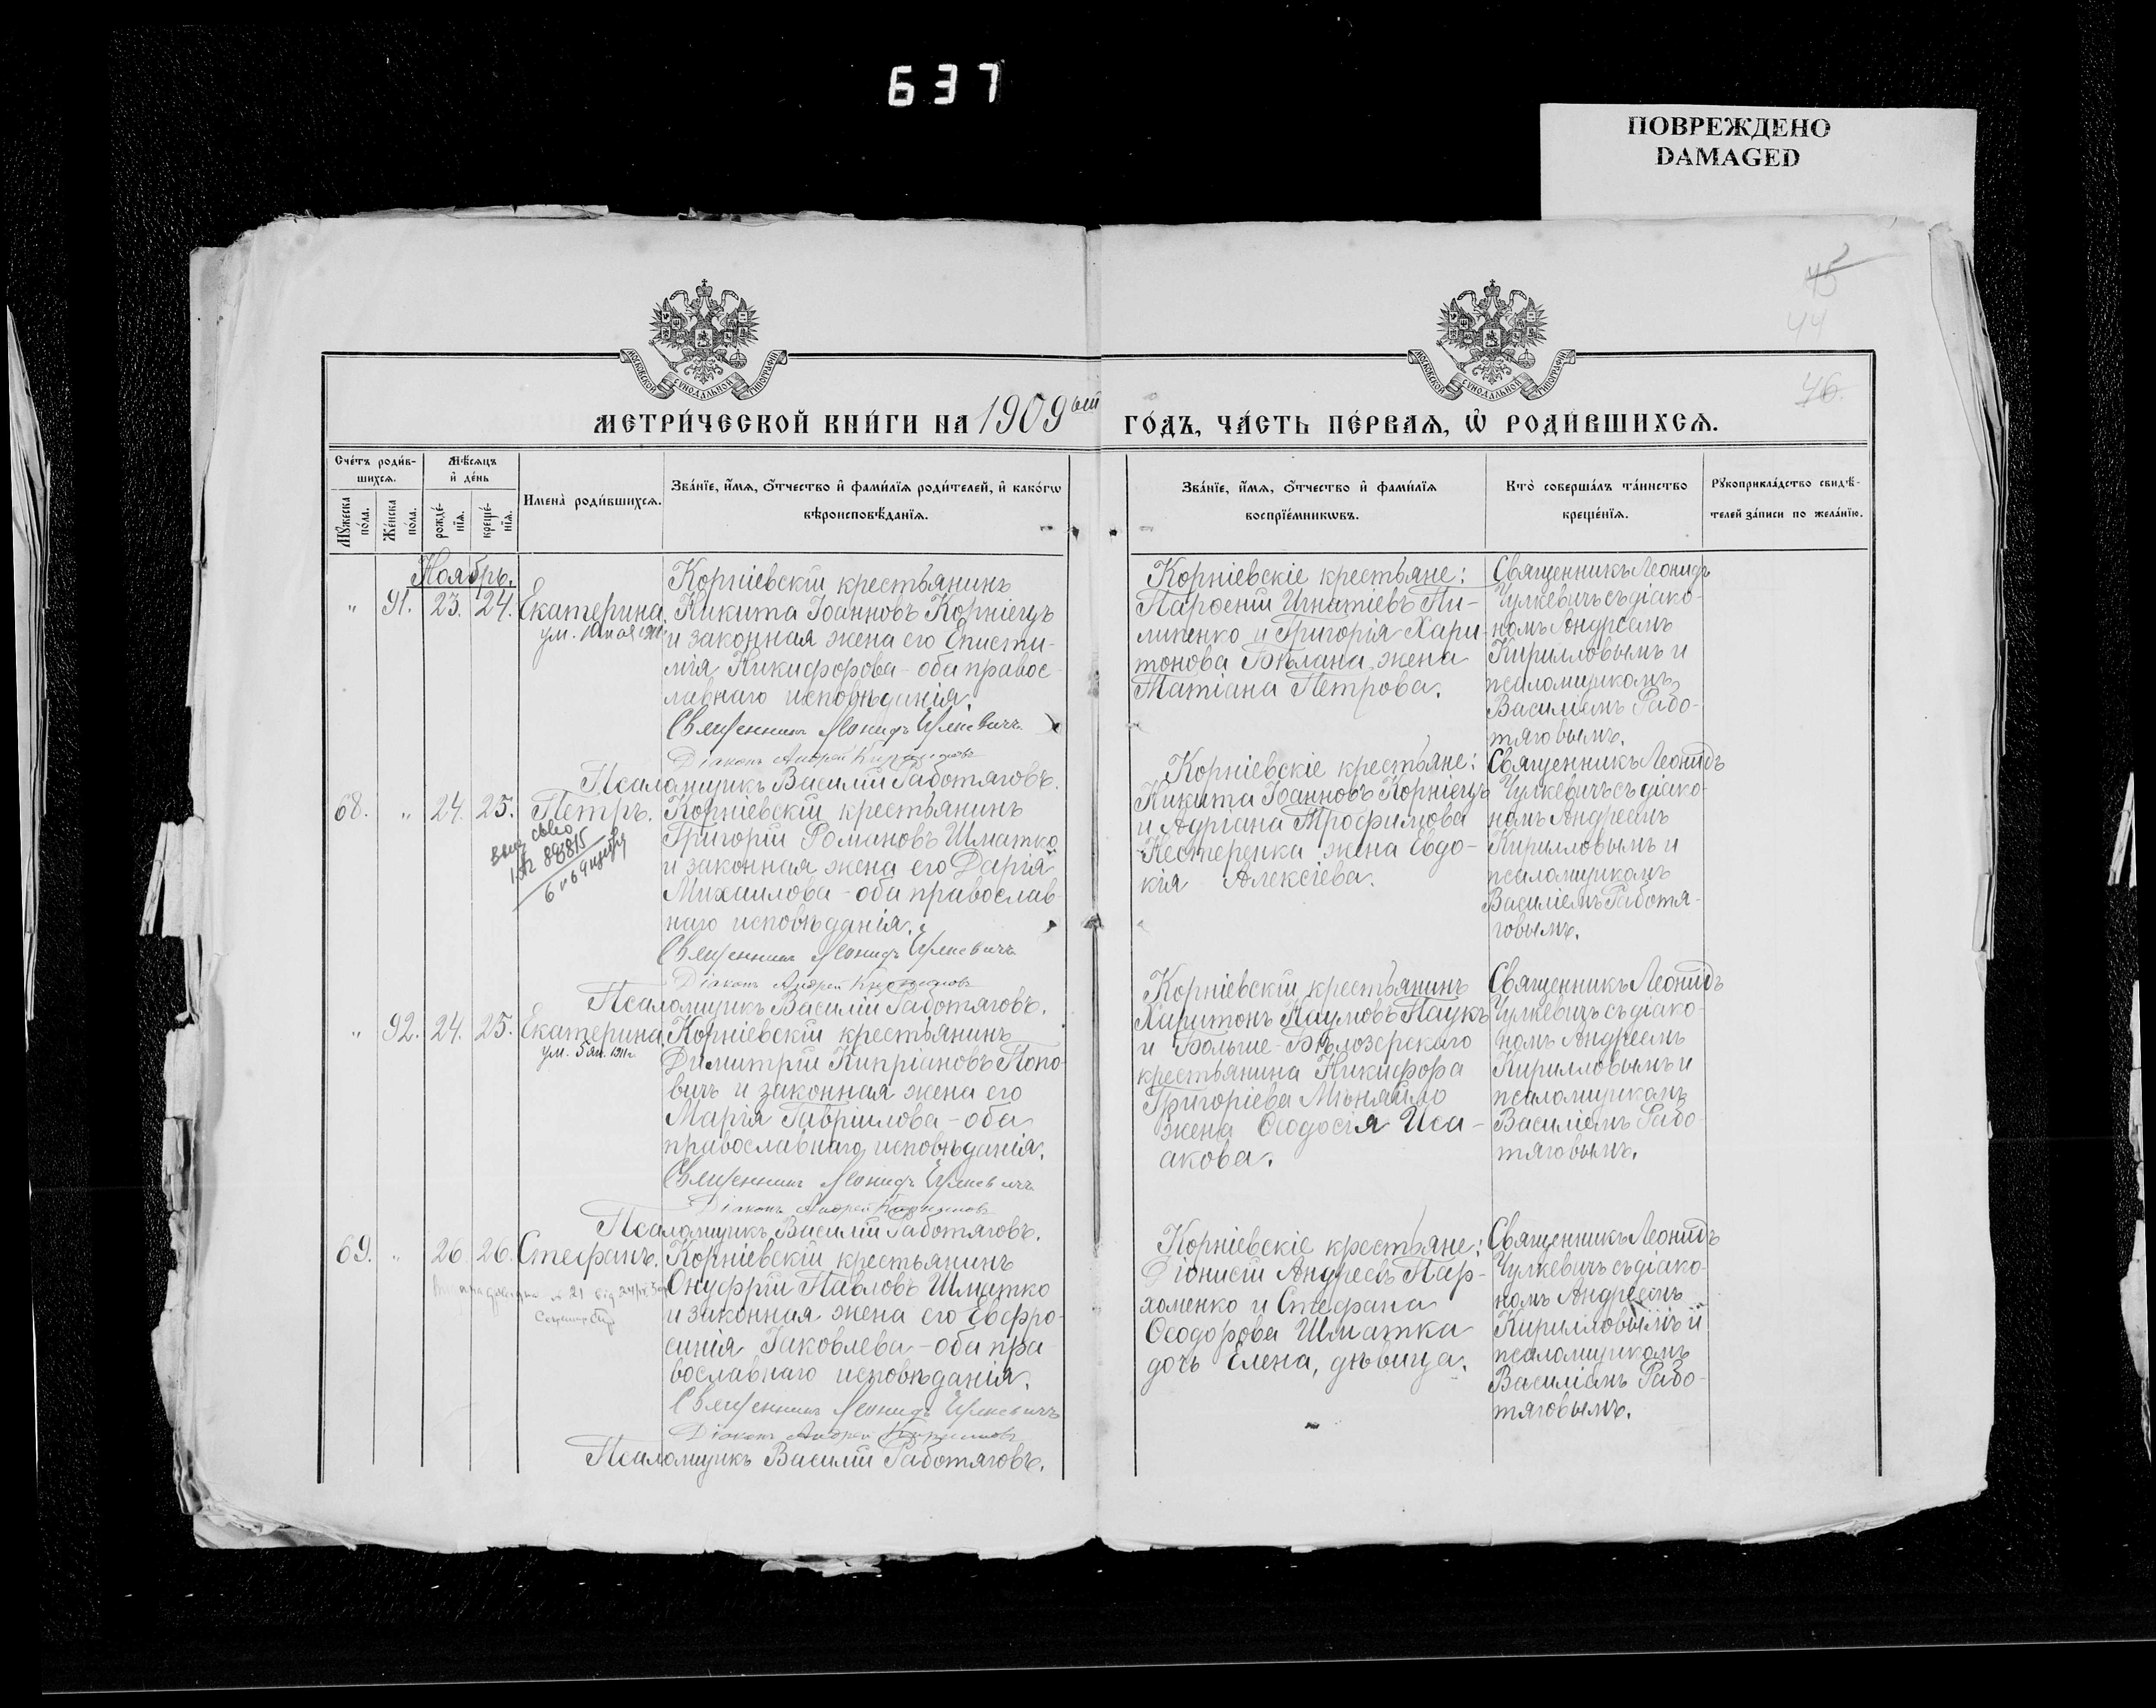 637
ПОВРЕЖДЕНО
DAMAGED
45
44
46.
МОСКОВСКОЙ СѴНОДАЛЬНОЙ ТИПОГРАФІИ
МОСКОВСКОЙ СѴНОДАЛЬНОЙ ТИПОГРАФІИ
МЕТРИ́ЧЕСКОЙ КНИ́ГИ НА 1909 ый ГО́ДЪ, ЧА́СТЬ ПЕ́РВАѦ, Ѡ҆ РОДИ́ВШИХСѦ.
Сче́тъ роди́в-
шихсѧ.
Мꙋ́жеска
по́ла.
Же́нска
по́ла.
Мѣ́сѧцъ
и҆ де́нь
рожде́-
нїѧ.
креще́-
нїѧ.
Имена̀ роди́вшихсѧ.
Зва́нїе, и҆́мѧ, ѻ҆́тчество и҆ фами́лїѧ роди́телей, и҆ како́гѡ
вѣроисповѣ́данїѧ.
Зва́нїе, и҆́мѧ, ѻ҆́тчество и҆ фами́лїѧ
воспрїе́мникѡвъ.
Кто̀ соверша́лъ та́инство
креще́нїѧ.
Рꙋкоприкла́дство свидѣ́-
телей за́писи по жела́нїю.
Ноябрь.
" 91. 23. 24. Екатерина.
ум. 1911
Корніевскій крестьянинъ
Никита Іоанновъ Корніецъ
и законная жена его Еписти-
мія Никифорова - оба правос-
лавнаго исповѣданія.
Священникъ Леонидъ Чулкевичъ
Діаконъ Андрей Кирилловъ
Псаломщикъ Василій Работяговъ.
Корніевскіе крестьяне:
Парѳеній Игнатіевъ Пи-
липенко и Григорія Хари-
тонова Бѣлана жена
Татіана Петрова.
Священникъ Леонидъ
Чулкевичъ съ діако-
номъ Андреемъ
Кирилловымъ и
псаломщикомъ
Василіемъ Рабо-
тяговымъ.
68. " 24. 25. Петръ.
Корніевскій крестьянинъ
Григорій Романовъ Шматко
и законная жена его Дарія
Михаилова - оба православ-
наго исповѣданія.
Священникъ Леонидъ Чулкевичъ
Діаконъ Андрей Кирилловъ
Псаломщикъ Василій Работяговъ.
Корніевскіе крестьяне:
Никита Іоанновъ Корніецъ
и Адріана Трофимова
Нестеренка жена Евдо-
кія Алексіева.
Священникъ Леонидъ
Чулкевичъ съ діако-
номъ Андреемъ
Кирилловымъ и
псаломщикомъ
Василіемъ Работя-
говымъ.
" 92. 24. 25. Екатерина.
ум. 5 ян. 1911 г.
Корніевскій крестьянинъ
Димитрій Кипріановъ Попо-
вичъ и законная жена его
Марія Гавріилова - оба
православнаго исповѣданія.
Священникъ Леонидъ Чулкевичъ
Діаконъ Андрей Кирилловъ
Псаломщикъ Василій Работяговъ.
Корніевскій крестьянинъ
Харитонъ Наумовъ Паукъ
и Больше-Бѣлозерскаго
крестьянина Никифора
Григоріева Мѣняйло
жена Ѳеодосія Иса-
акова.
Священникъ Леонидъ
Чулкевичъ съ діако-
номъ Андреемъ
Кирилловымъ и
псаломщикомъ
Василіемъ Рабо-
тяговымъ.
69. " 26. 26. Стефанъ.
Корніевскій крестьянинъ
Онуфрій Павловъ Шматко
и законная жена его Евфро-
синія Іаковлева - оба пра-
вославнаго исповѣданія.
Священникъ Леонидъ Чулкевичъ
Діаконъ Андрей Кирилловъ
Псаломщикъ Василій Работяговъ.
Корніевскіе крестьяне:
Діонисій Андреевъ Пар-
хоменко и Стефана
Ѳеодорова Шматка
дочь Елена, дѣвица.
Священникъ Леонидъ
Чулкевичъ съ діако-
номъ Андреемъ
Кирилловымъ и
псаломщикомъ
Василіемъ Рабо-
тяговымъ.